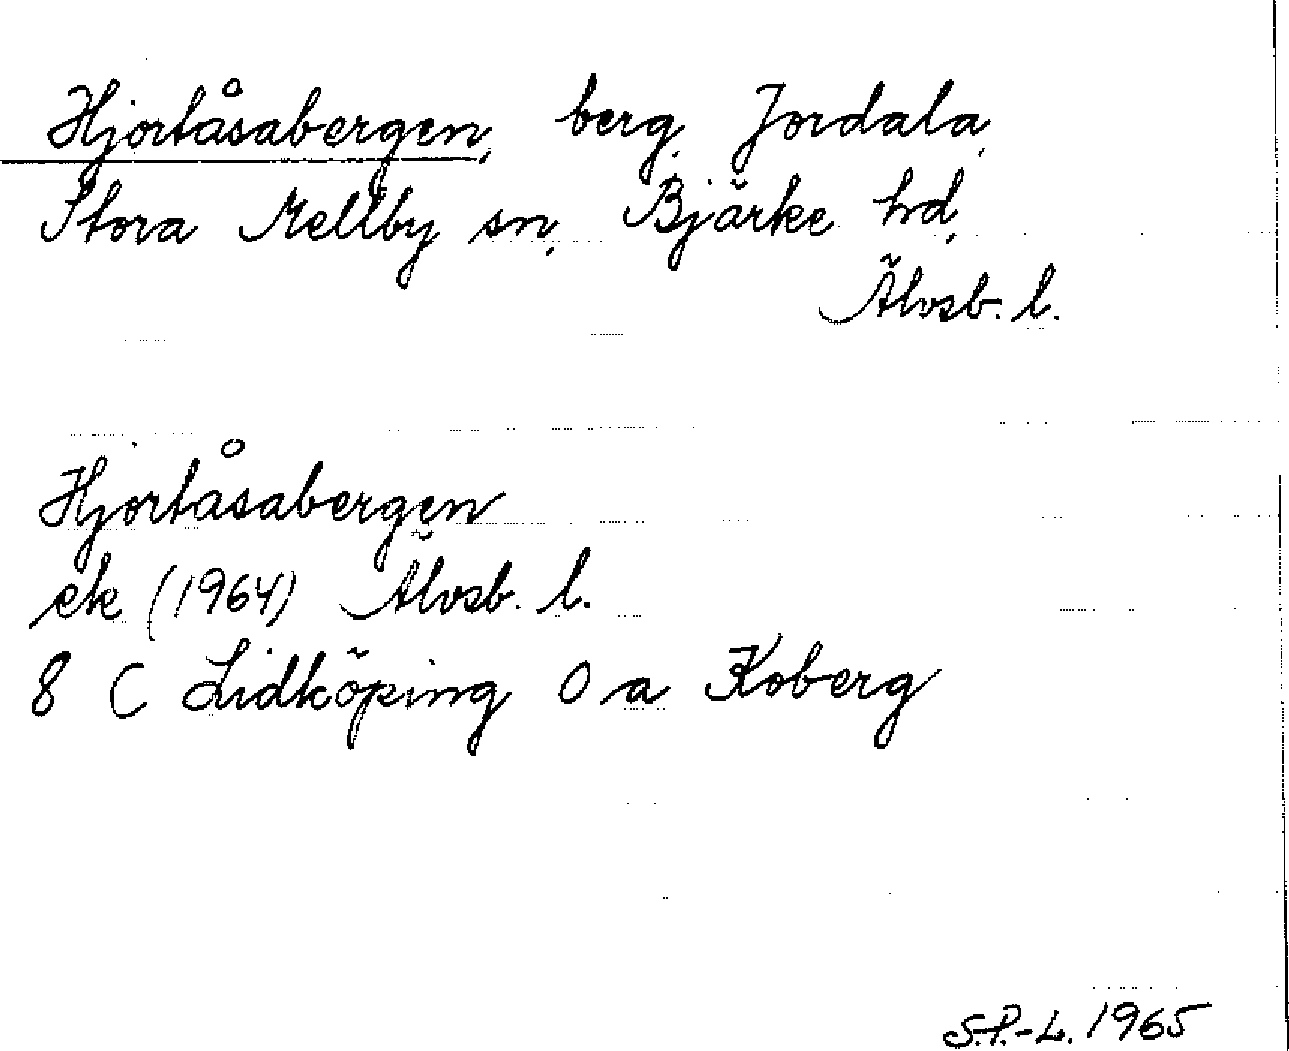 Hjortåsabergen, berg, Jordala,
Stora Mellby sn, Bjärke hd,
Älvsb. l.
Hjortåsabergen
ek (1964) Älvsb. l.
8 C Lidköping 0 a Koberg
S.P.-L. 1965